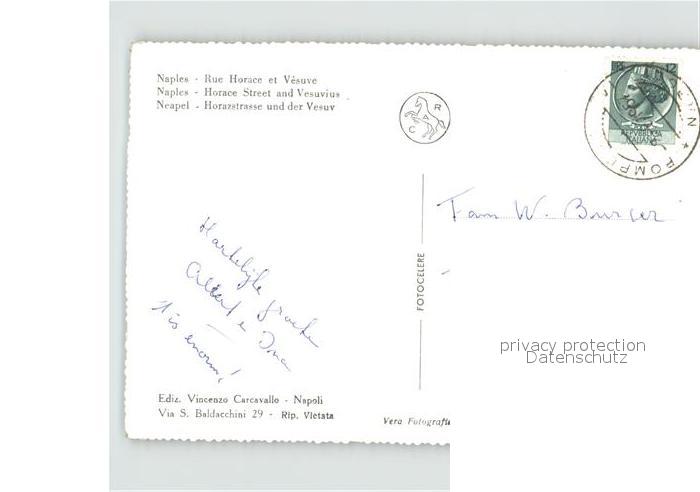 Naples - Rue Horace et Vésuve
Naples - Horace Street and Vesuvius
Neapel - Horazstrasse und der Vesuv
C A R
12
REPVBBLICA
ITALIANA
POMPEI
Fam W. Burger
Hartelijke groeten
Albert e Ina
't is enorm!
FOTOCELERE
privacy protection
Datenschutz
Ediz. Vincenzo Carcavallo - Napoli
Via S. Baldacchini 29 - Rip. Vietata
Vera Fotografi